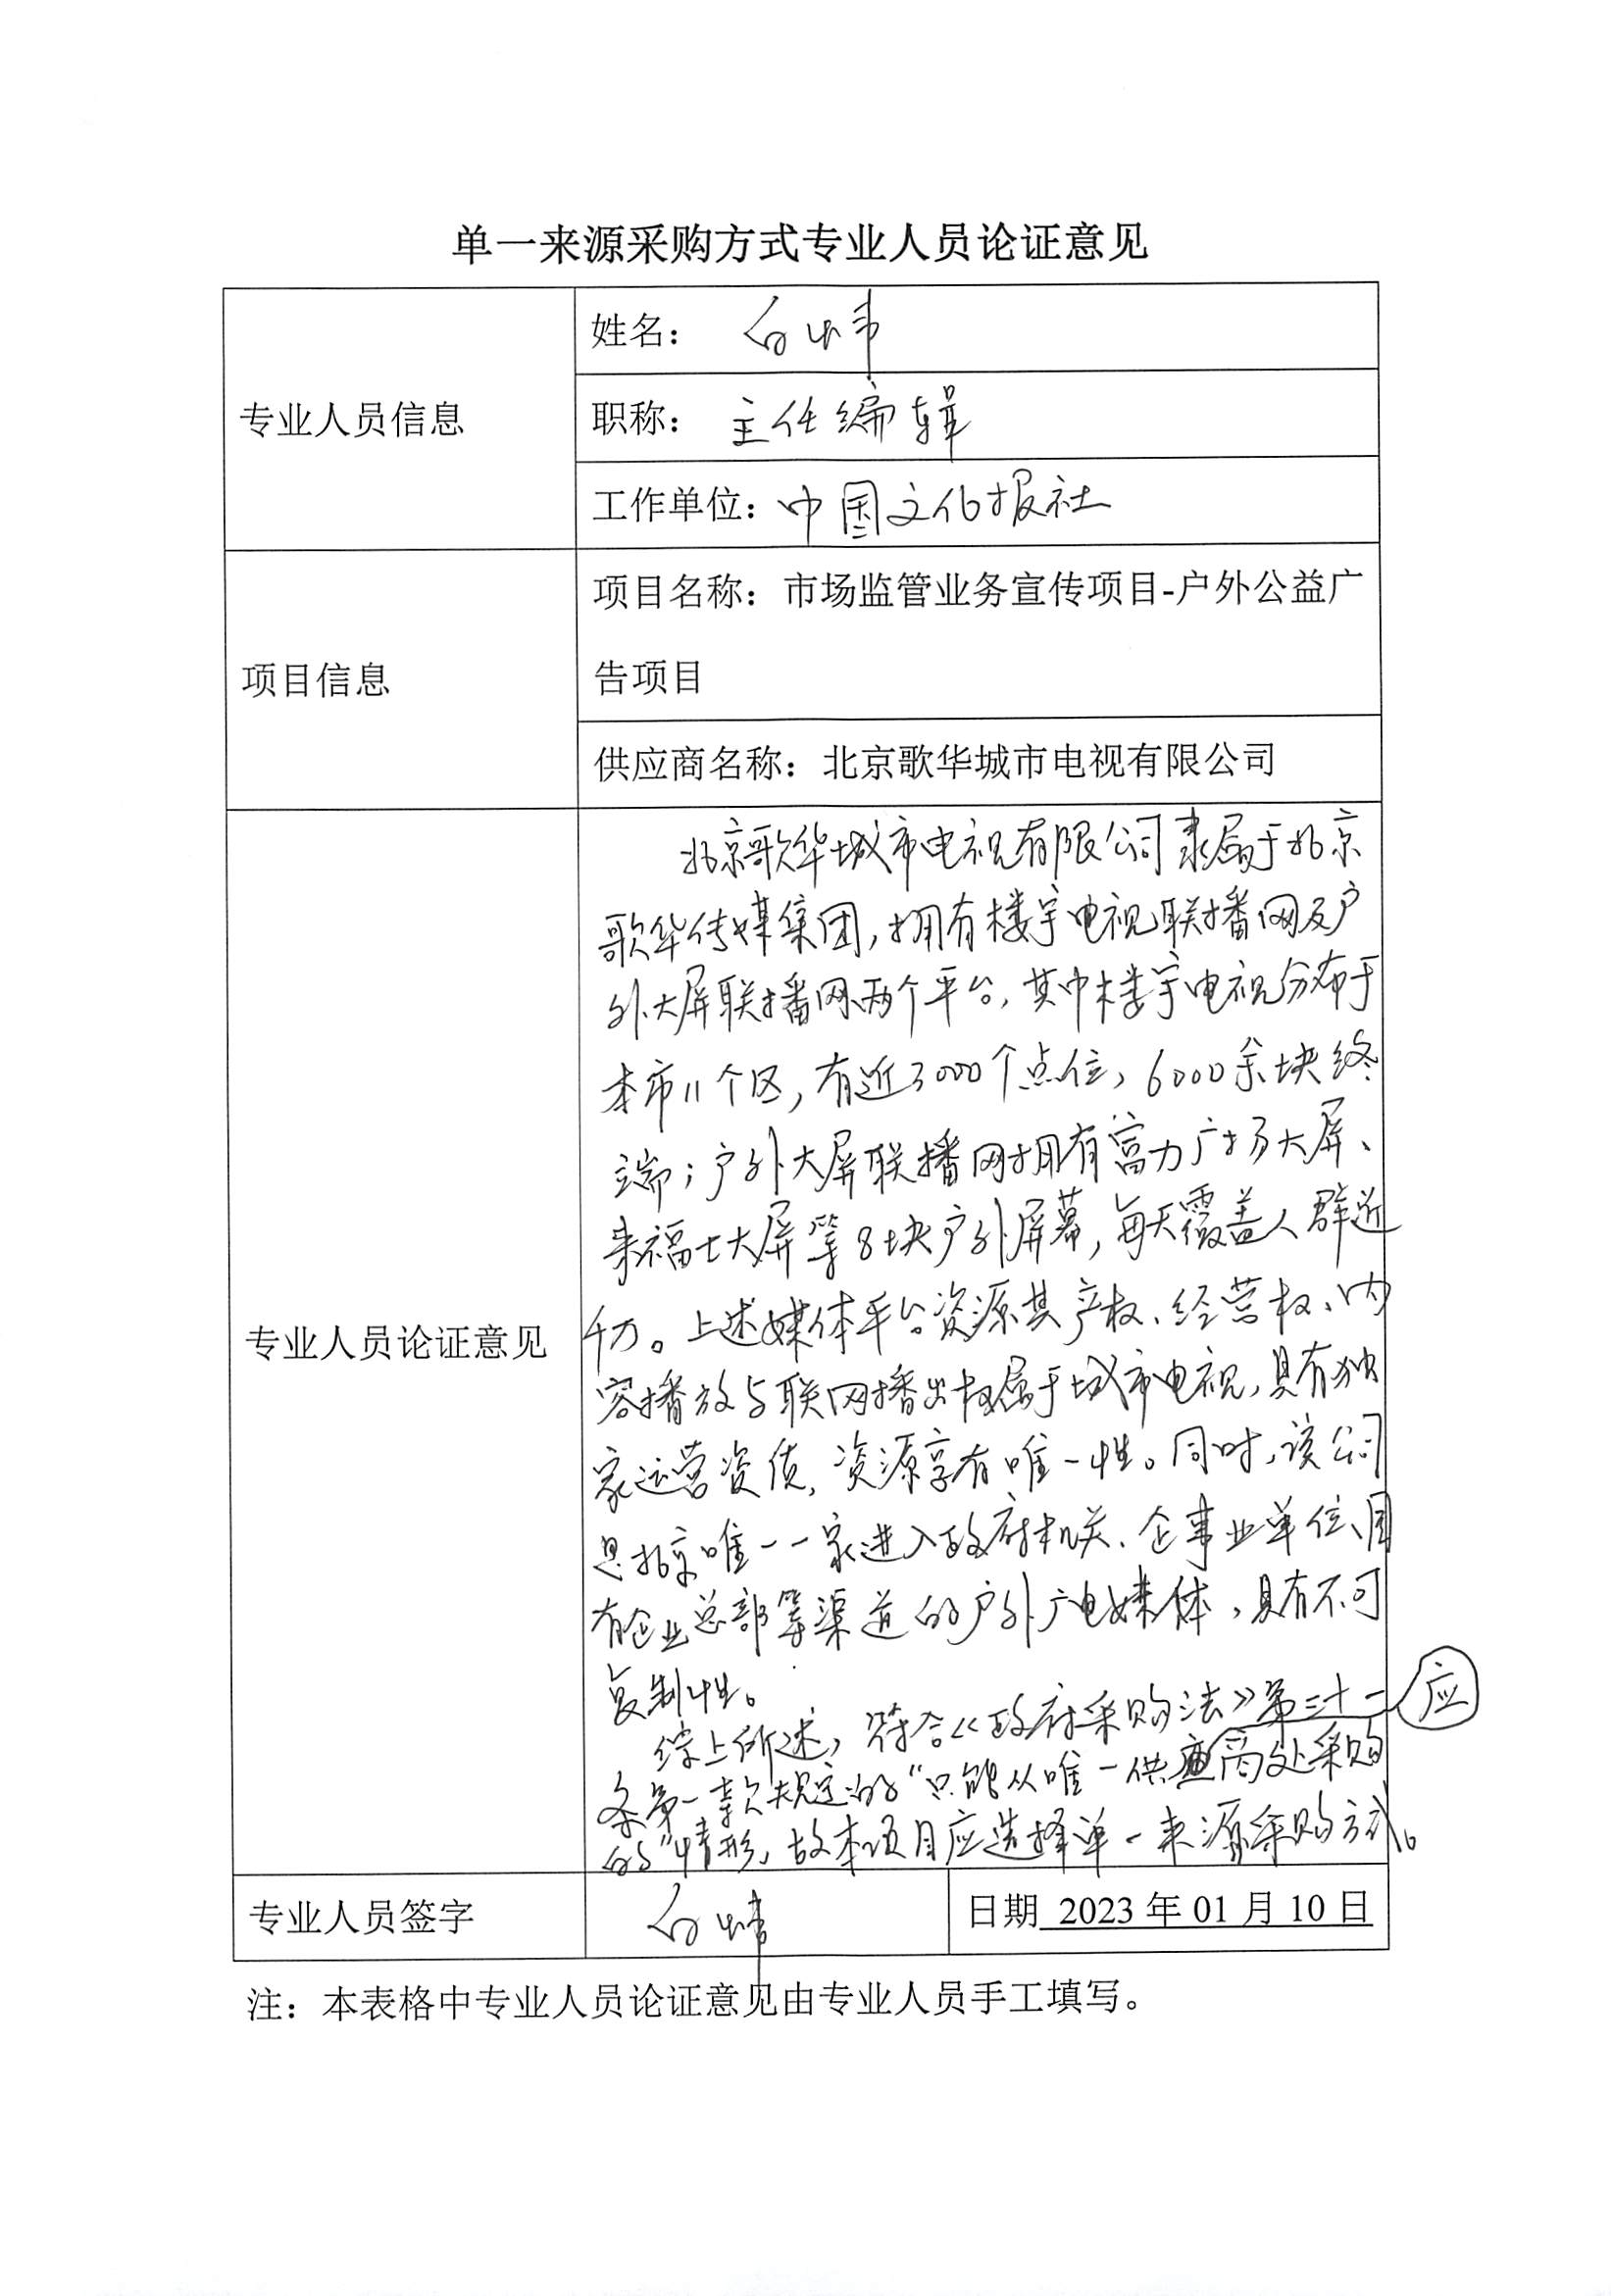 单一来源采购方式专业人员论证意见
专业人员信息
姓名：白炜
职称：主任编辑
工作单位：中国文化报社
项目信息
项目名称：市场监管业务宣传项目-户外公益广
告项目
供应商名称：北京歌华城市电视有限公司
专业人员论证意见
北京歌华城市电视有限公司隶属于北京
歌华传媒集团，拥有楼宇电视联播网及户
外大屏联播网两个平台，其中楼宇电视分布于
本市11个区，有近3000个点位，6000余块终
端；户外大屏联播网拥有富力广场大屏、
来福士大屏等8块户外屏幕，每天覆盖人群近
千万。上述媒体平台资源其产权、经营权、内
容播放与联网播出权属于城市电视，具有独
家运营资质，资源享有唯一性。同时，该公司
是北京唯一一家进入政府机关、企事业单位、国
有企业总部等渠道的户外广电媒体，具有不可
复制性。
综上所述，符合《政府采购法》第三十一
应
条第一款规定的“只能从唯一供应商处采购
的”情形，故本项目应选择单一来源采购方式。
专业人员签字
白炜
日期 2023 年 01 月 10 日
注：本表格中专业人员论证意见由专业人员手工填写。